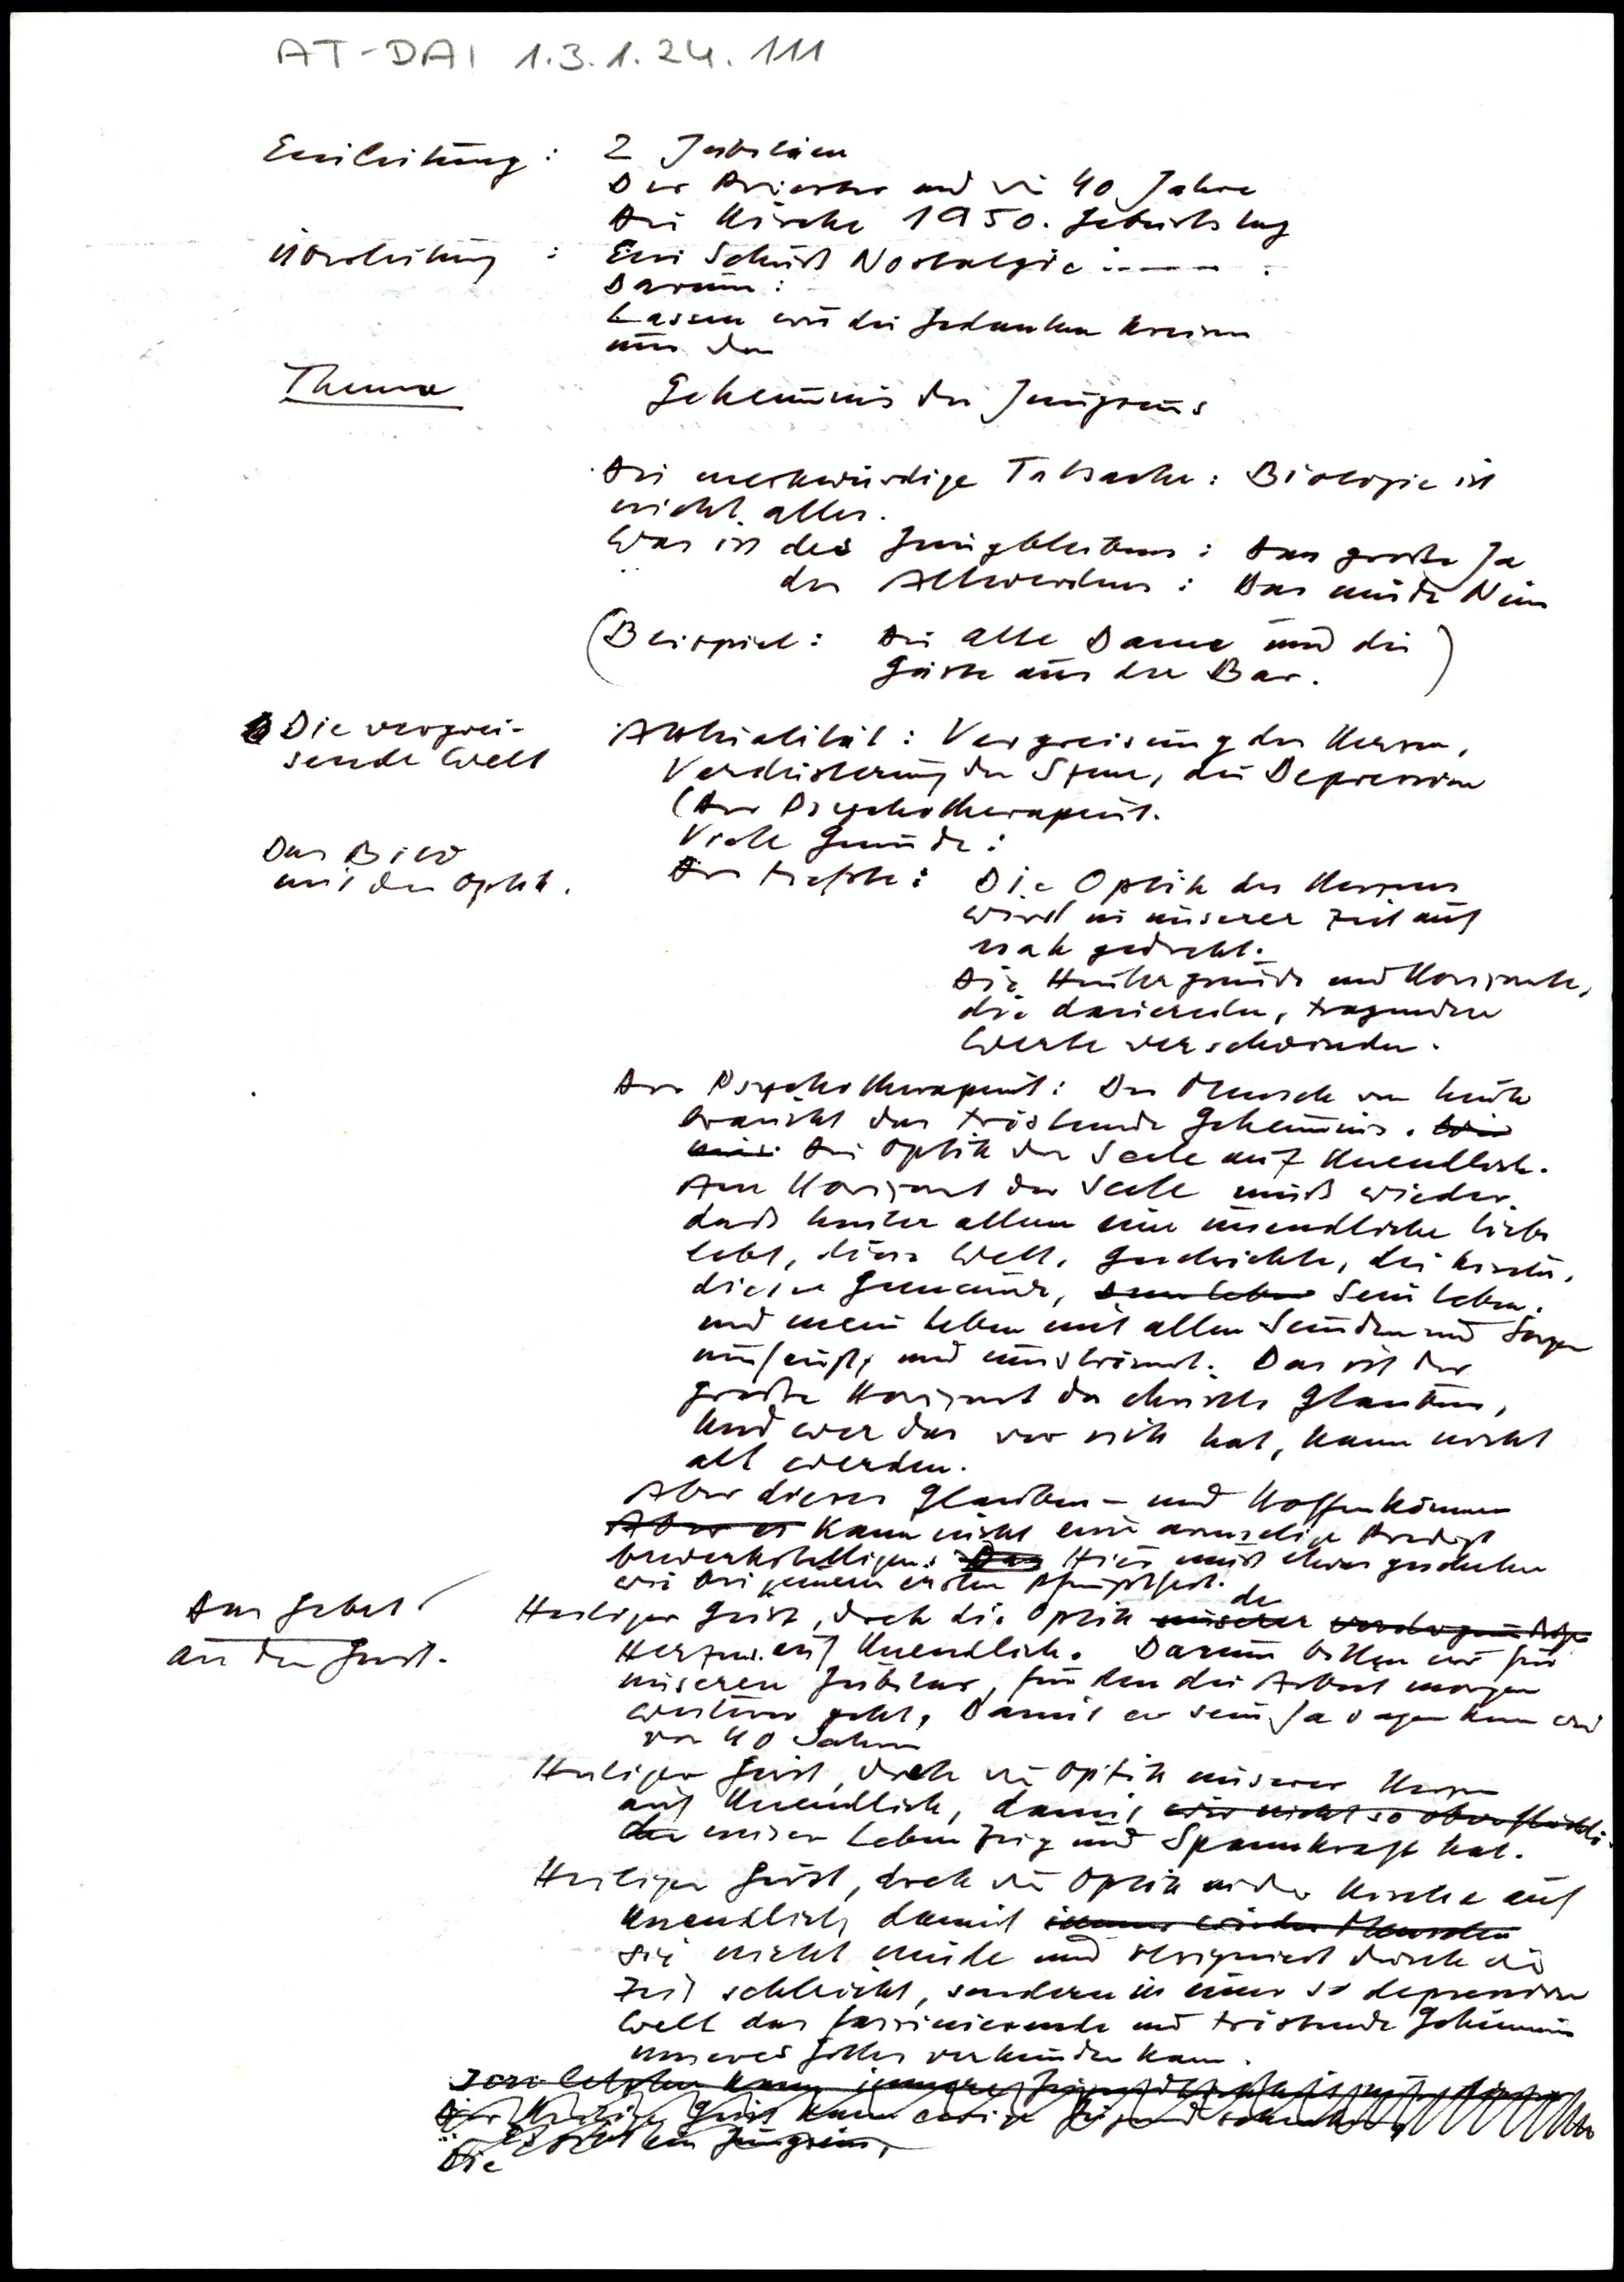 AT-DAI 1.3.1.24.111
Einleitung: 2 Jubiläen
Der Priester und die 40 Jahre
Die Kirche 1950. Geburtstag
Überleitung: Ein Schuß Nostalgie -----.
Darum:
Lassen wir die Gedanken kreisen
um das
Thema Geheimnis des Jungseins
Die merkwürdige Tatsache: Biologie ist
nicht alles.
Was ist des Jungbleibens: Das große Ja
des Altwerdens: Das müde Nein
(Beispiel: Die alte Dame und die
Gäste aus der Bar.)
Die vergrei-
sende Welt
Aktualität: Vergreisung der Herzen,
Verdüsterung der Szene, die Depression
(Der Psychotherapeut.
Viele Gründe:
Das Bild
mit der Optik.
Der tiefste: Die Optik des Herzens
wird in unserer Zeit auf
nah gedreht.
Die Hintergründe und Horizonte,
die dauernden, tragenden
Werte verschwinden.
Der Psychotherapeut: Der Mensch von heute
braucht das tröstende Geheimnis.
Die Optik der Seele auf Unendlich.
Am Horizont der Seele muß wieder
daß hinter allem eine unendliche Liebe
lebt, diese Welt, Geschichte, die Kirche,
diese Gemeinde, sein Leben Sein Leben.
und mein Leben mit allen Sünden und Sorgen
umfängt und umströmt. Das ist der
große Horizont des christl. Glaubens,
Und wer das vor sich hat, kann nicht
alt werden.
Aber dieses Glauben- und Hoffenkönnen
Aber es kann nicht eine armselige Predigt
bewerkstelligen. Das Hier muß etwas geschehen
wie bei jenem ersten Pfingstfest.
Das Gebet
an den Geist.
Heiliger Geist, dreh die Optik unserer des
Herzens auf Unendlich. Darum bitten wir für
unseren Jubilar, für den die Arbeit morgen
weiter geht, Damit er sein Ja sagen kann wie
vor 40 Jahren
Heiliger Geist, dreh die Optik unserer Herzen
auf Unendlich, damit wir nicht so oberflächli-
unser Leben Zug und Spannkraft hat.
Heiliger Geist, dreh die Optik in der Kirche auf
Unendlich, damit immer wieder Menschen
sie nicht müde und resigniert durch die
Zeit schleicht, sondern in einer so depressiven
Welt das faszinierende und tröstende Geheimnis
unseres Gottes verkünden kann.
Der Heilige Geist kann ewige Jugend schenken
Es gibt ein Jungsein,
Die